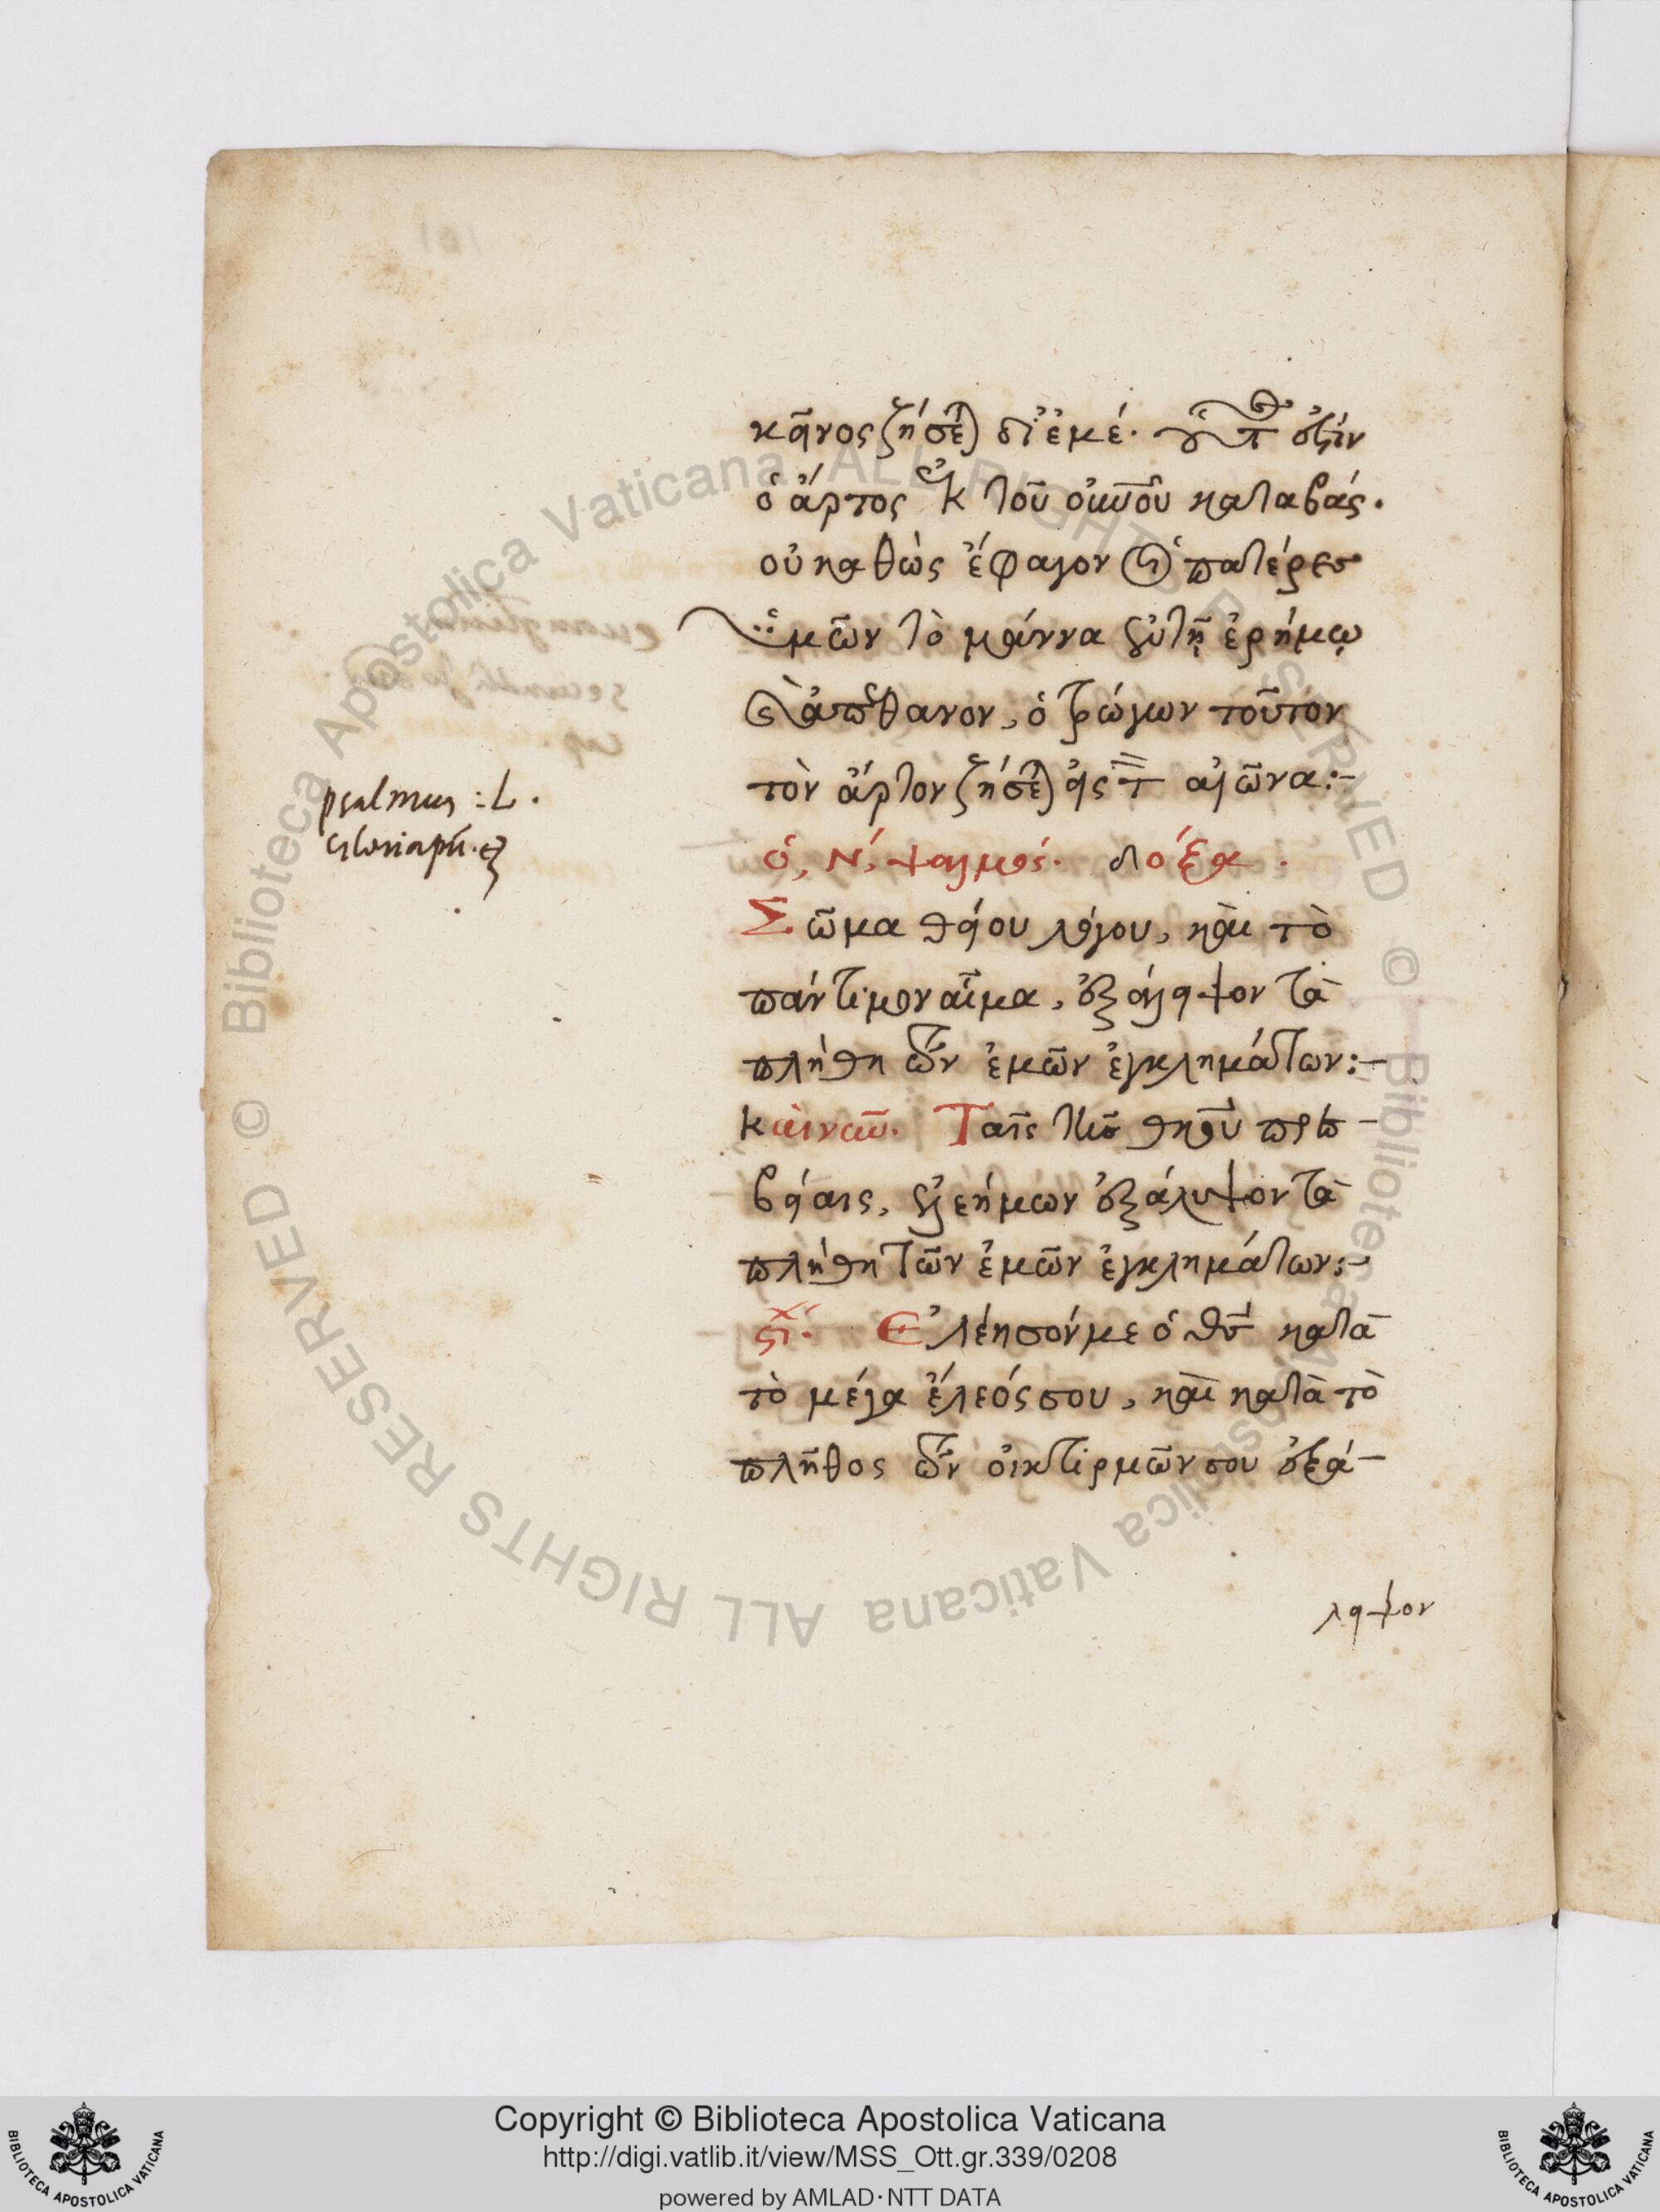 κεῖνος ζήσεται δι' ἐμέ. οὗτός ἐστιν
ὁ ἄρτος ἐκ τοῦ οὐνοῦ καταβάς.
οὐ καθὼς ἔφαγον οἱ πατέρες
ὑμῶν τὸ μάννα ἐν τῇ ἐρήμῳ
καὶ ἀπέθανον, ὁ τρώγων τοῦτον
τὸν ἄρτον ζήσεται εἰς τὸν αἰῶνα:-
ὁ, Ν, ψαλμός. δόξα.
Σῶμα θείου λόγου, καὶ τὸ
πάντιμον αἷμα, ἐξάλειψον τὰ
πλήθη τῶν ἐμῶν ἐγκλημάτων:-
και νῦν. Ταῖς τῆς θκοῦ πρεσ-
βείαις, ἐλεήμων ἐξάλειψον τὰ
πλήθη τῶν ἐμῶν ἐγκλημάτων:-
στίχ. Ἐλέησόν με ὁ θσ κατὰ
τὸ μέγα ἔλεός σου, καὶ κατὰ τὸ
πλῆθος τῶν οἰκτιρμῶν σου ἐξά-
λειψον
psalmus :L.
gloria pri. &
Copyright © Biblioteca Apostolica Vaticana
http://digi.vatlib.it/view/MSS_Ott.gr.339/0208
powered by AMLAD·NTT DATA
BIBLIOTECA APOSTOLICA VATICANA
BIBLIOTECA APOSTOLICA VATICANA
© Biblioteca Apostolica Vaticana ALL RIGHTS RESERVED
© Biblioteca Apostolica Vaticana ALL RIGHTS RESERVED